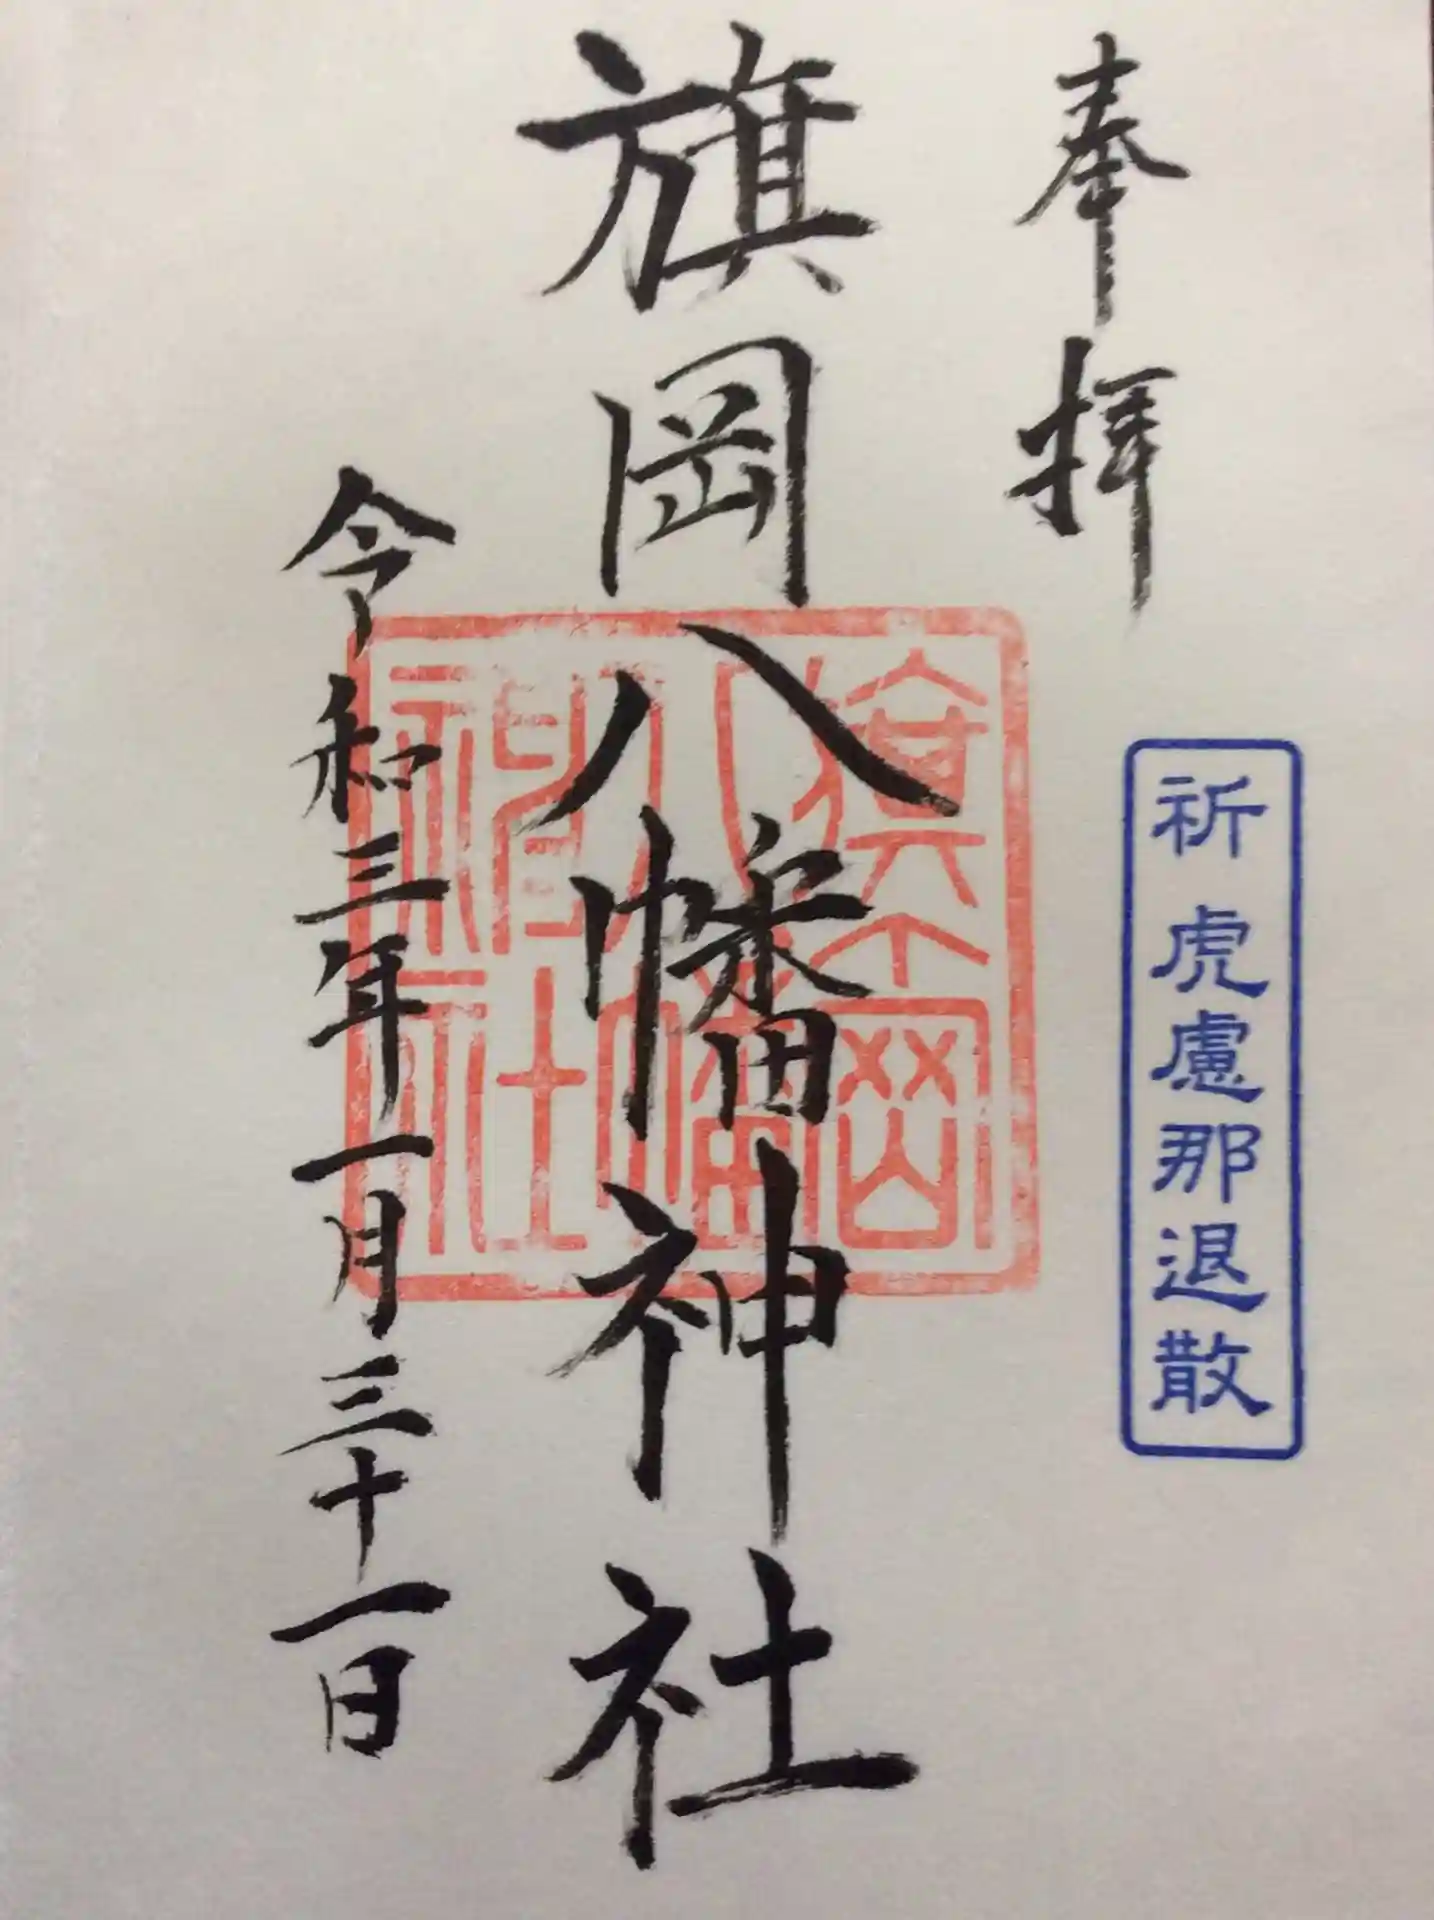 奉拝
祈 虎慮那退散
旗岡八幡神社
旗岡
八幡
神社
令和三年一月三十一日